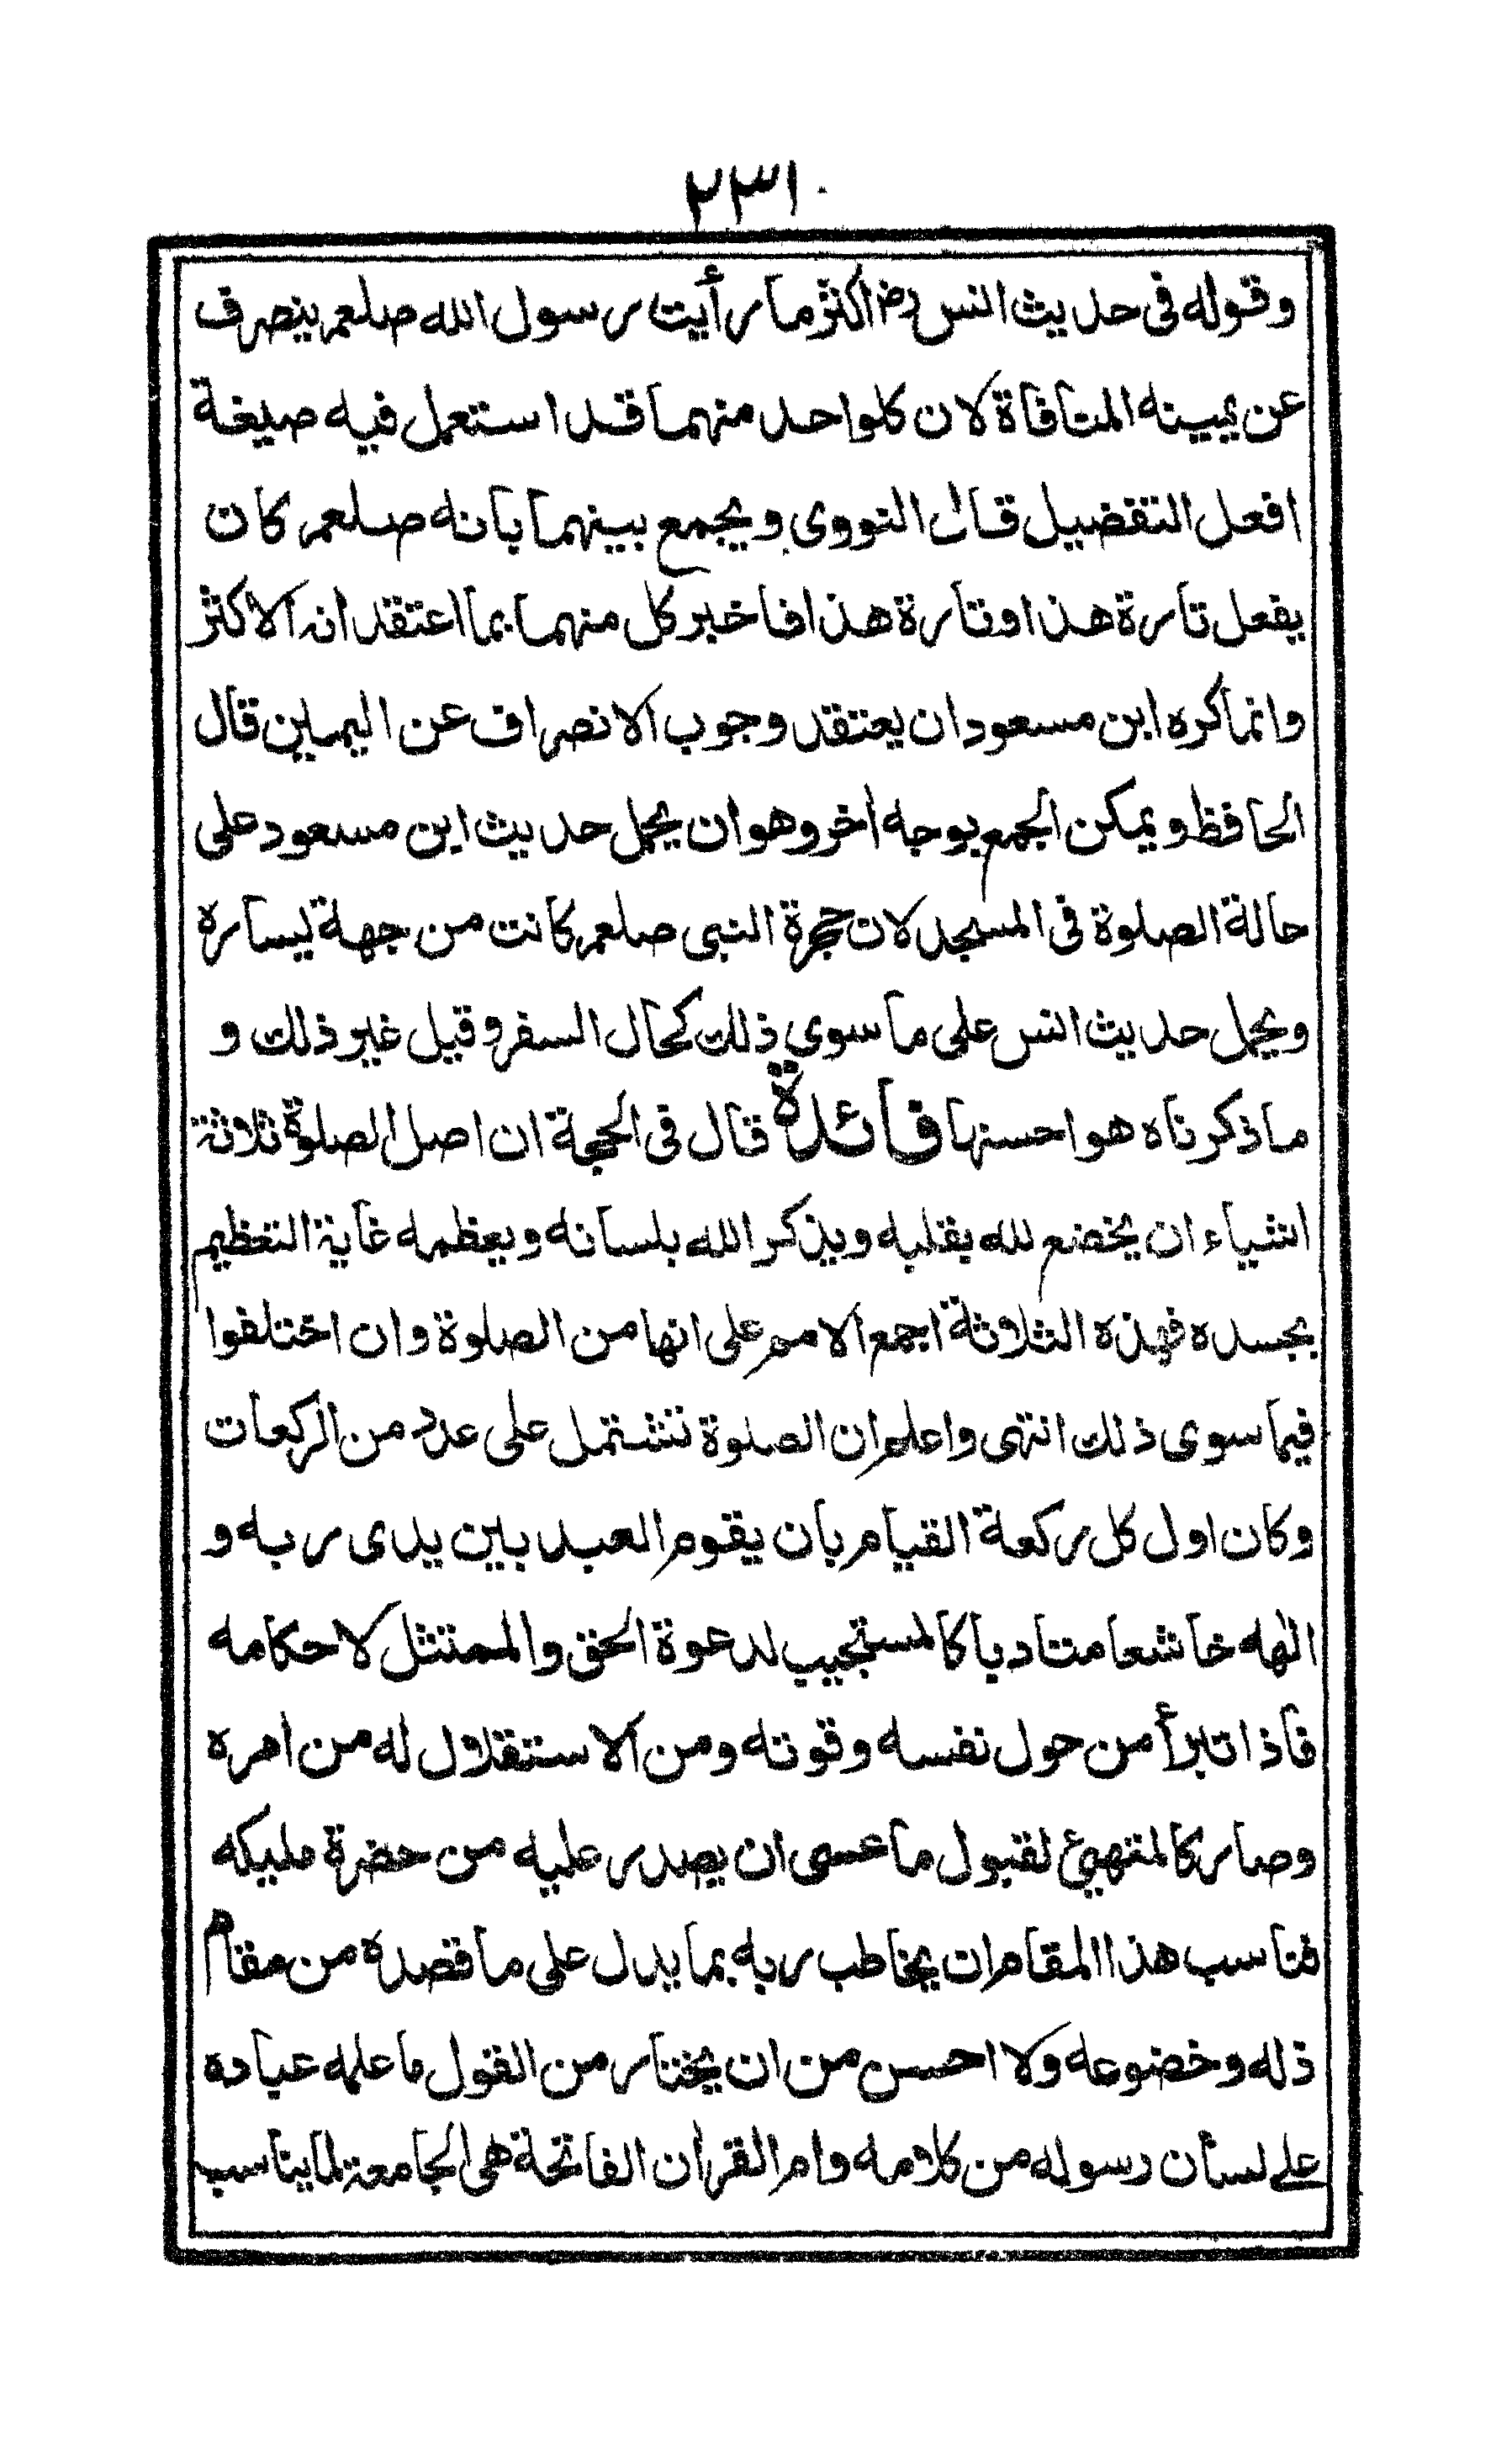 ٢٣١
وقوله فى حديث انس رض اكثر ما رأيت رسول الله صلعم ينصرف
عن يمينه المنافاة لان كلواحد منهما قد استعمل فيه صيغة
افعل التفضيل قال النووى ويجمع بينهما بانه صلعم كان
يفعل تارة هذا وتارة هذا فاخبر كل منهما بما اعتقد انه الاكثر
وانما كره ابن مسعود ان يعتقد وجوب الانصراف عن اليمين قال
الحافظ ويمكن الجمع بوجه اخر وهو ان يحمل حديث ابن مسعود على
حالة الصلوة فى المسجد لان حجرة النبى صلعم كانت من جهة يساره
ويحمل حديث انس على ما سوى ذلك كحال السفر وقيل غير ذلك و
ما ذكرناه هو احسنها فائدة قال فى الحجة ان اصل الصلوة ثلاثة
اشياء ان يخضع لله بقلبه ويذكر الله بلسانه ويعظمه غاية التعظيم
بجسده فهذه الثلاثة اجمع الامم على انها من الصلوة وان اختلفوا
فيما سوى ذلك انتهى واعلم ان الصلوة تشتمل على عدد من الركعات
وكان اول كل ركعة القيام بان يقوم العبد بين يدى ربه و
الهه خاشعا متادبا كالمستجيب لدعوة الحق والممتثل لاحكامه
فاذا تبرأ من حول نفسه وقوته ومن الاستقلال له من امره
وصار كالمتهيئ لقبول ما عسى ان يصدر عليه من حضرة مليكه
فناسب هذا المقام ان يخاطب ربه بما يدل على ما قصده من مقام
ذله وخضوعه ولا احسن من ان يختار من القول ما علمه عباده
على لسان رسوله من كلامه وام القران الفاتحة هى الجامعة لما يناسب